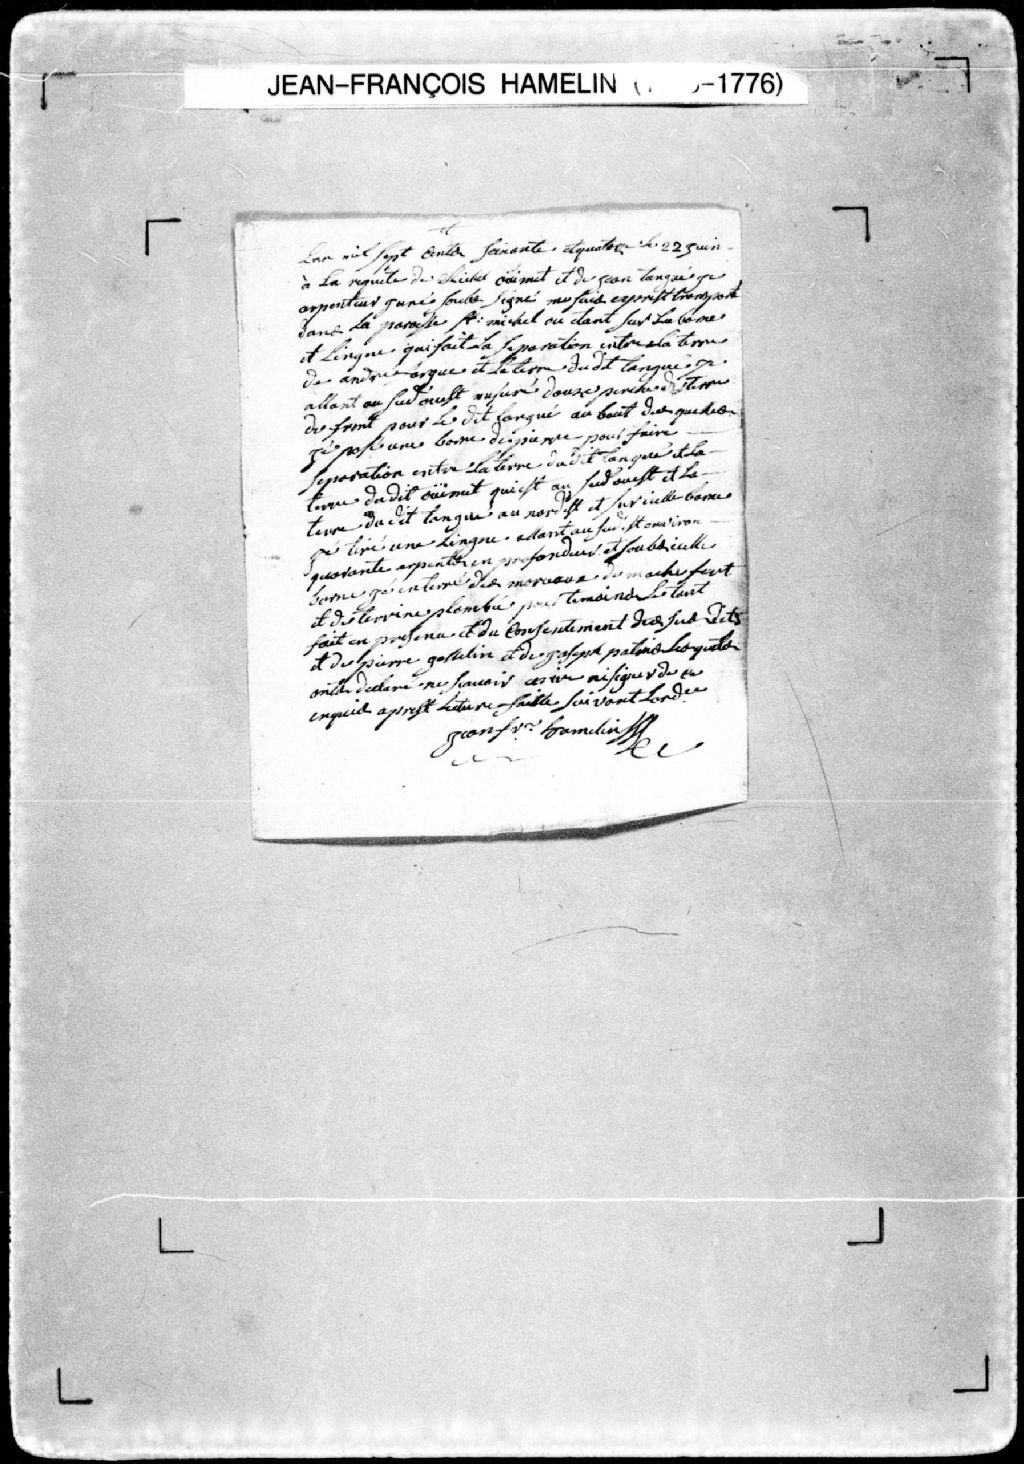 JEAN-FRANÇOIS HAMELIN ( -1776)
Lan mil sept cents soixante et quatorze le 22 juin
a La requête de Michel oüimet et de jean langué ge
arpenteur juré soubs signé me suis exprest transporté
dans La paroisse st: michel ou etant sur La borne
et Lingne qui fait La separation entre La terre
de andré et La terre du dit langué ge
allant au sud ouest mesuré douze perche de terre
de front pour Le dit langué au bout des quelles
gé posé une borne de pierre pour faire
separation entre La terre du dit langué et La
terre du dit oüimet qui est au sud ouest et La
terre du dit langué au nordest et sur icelle borne
gé tiré une Lingne allant au sudest environ
quarante arpents en profondeur et soubs icelle
borne gé enterré des morceaux de mache fert
et de terrine plombée pour temoins Le tout
fait en presence et du Consentement des sus dits
et de pierre gosselin et de joseph Lesquels
onts declaré ne scavoir ecrire ni signer de ce
enquis aprest Lecture faitte suivant Lordce
jean frs hamelin